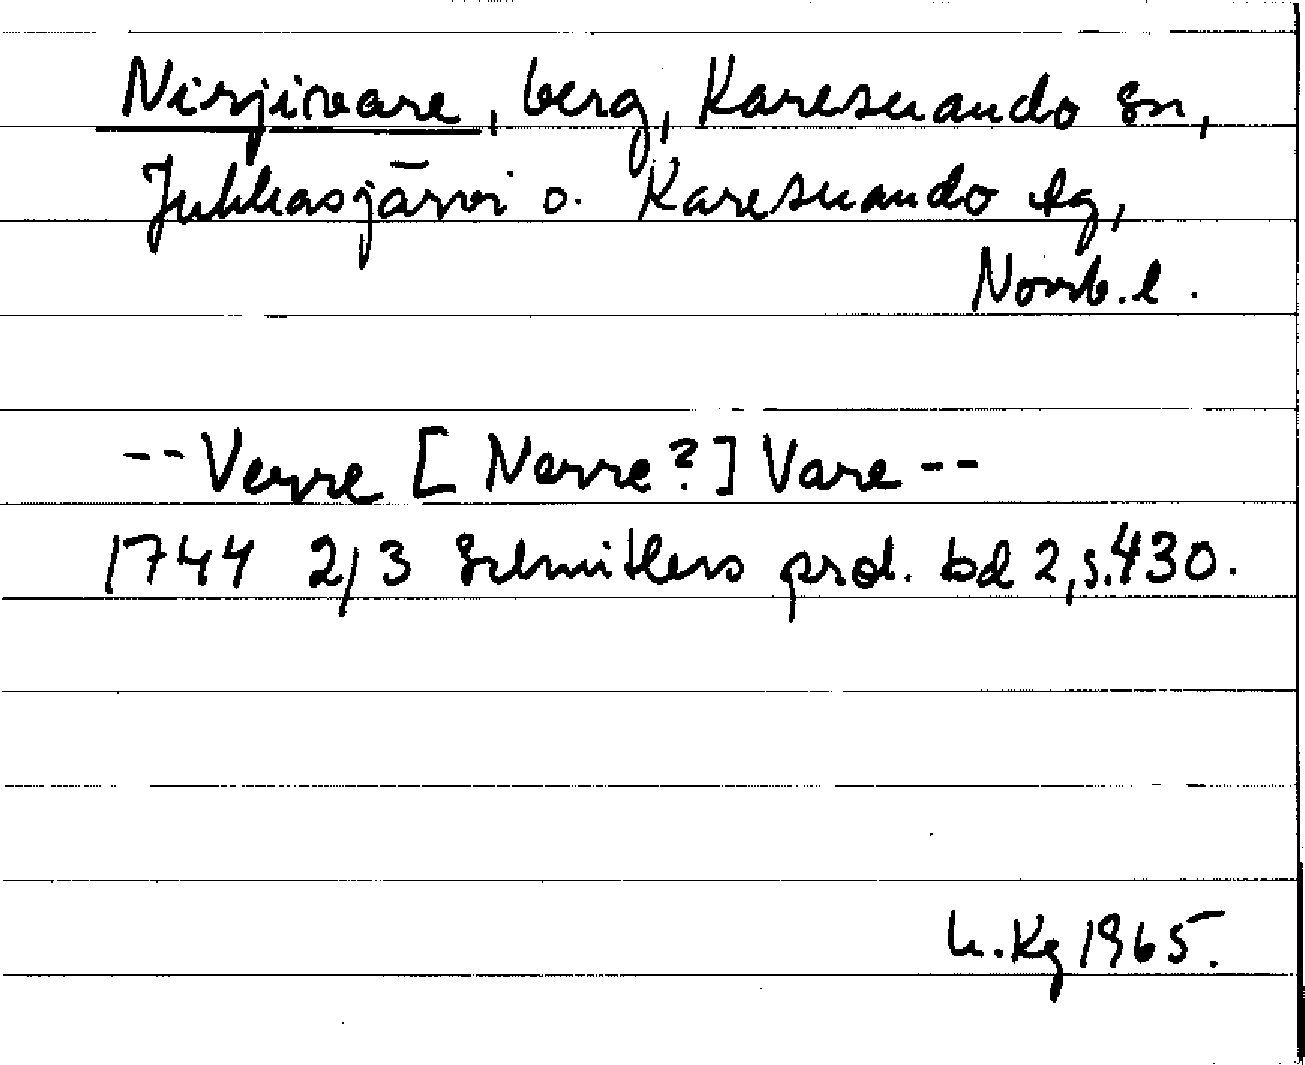 Nirjivare, berg, Karesuando sn,
Jukkasjärvi o. Karesuando lg,
Norrb. l.
-- Verre [Nerre?] Vare --
1744 2/3 Schnitlers prot. bd 2, s. 430.
H. Kg 1965.